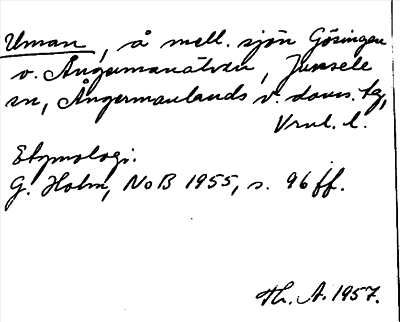 Uman, å mell. sjön Gösingen
o. Ångermanälven, Junsele
sn, Ångermanlands v. doms. tg,
Vnl. l.
Etymologi.
G. Holm, NoB 1955, s. 96 ff.
Th. A. 1957.